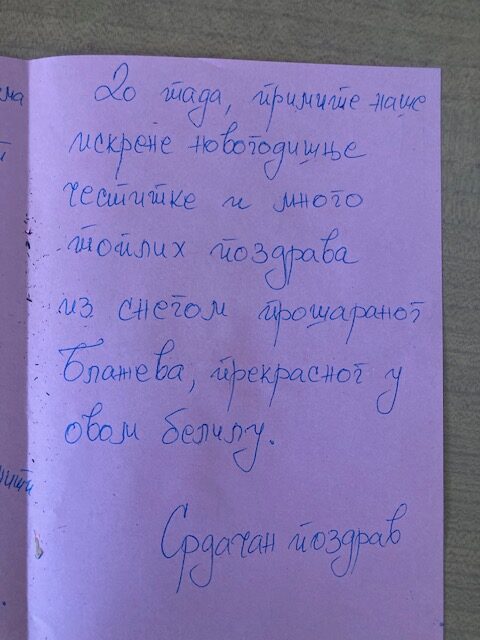 До тада, примите наше
искрене новогодишње
честитке и много
топлих поздрава
из снегом прошараног
Блажева, прекрасног у
овом белилу.
Срдачан поздрав